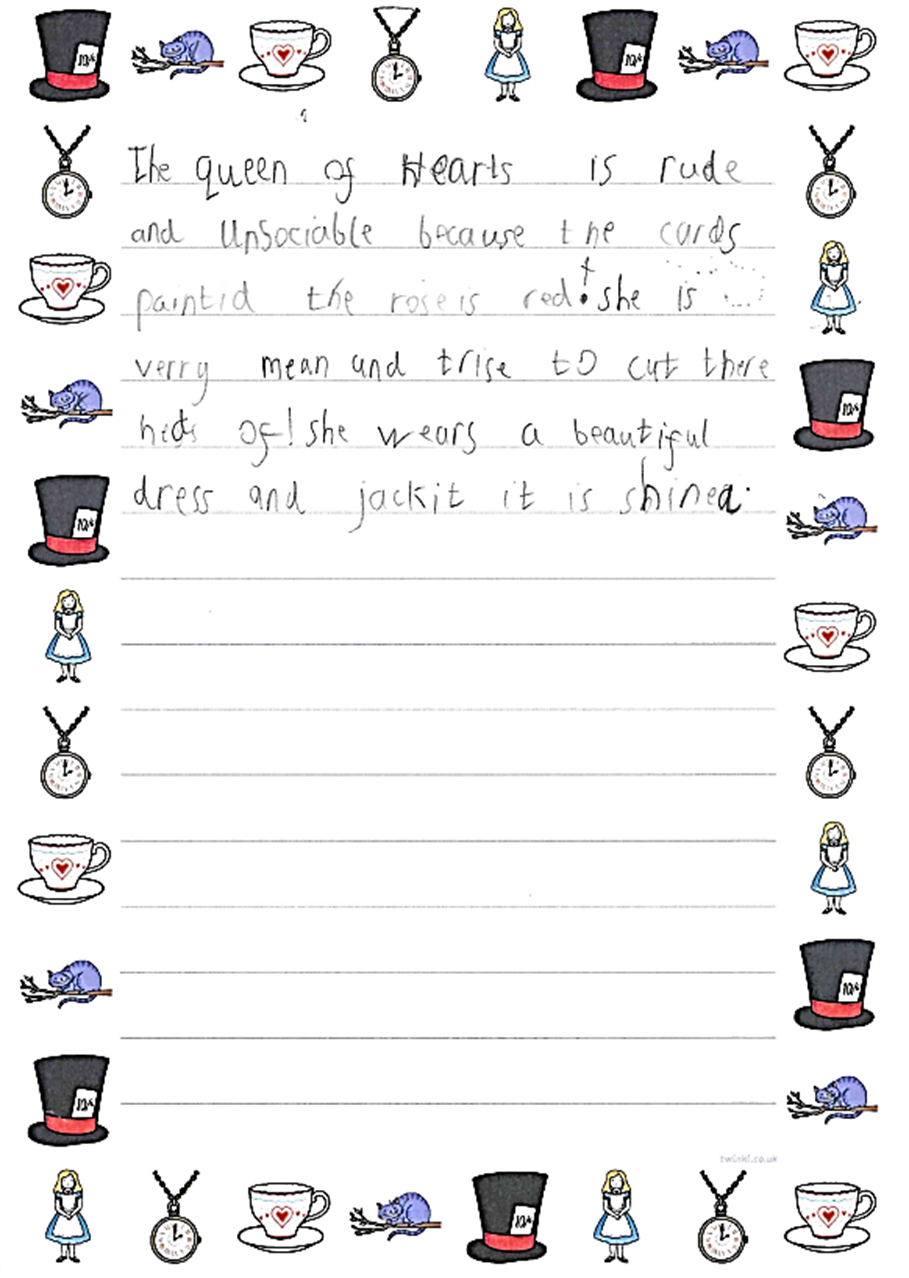 The queen of Hearts is rude
and Unsociable because the cards
paintid the rose is red! she is
verry mean and trise to cut there
hids of! she wears a beautiful
dress and jackit it is shinea.
twinkl.co.uk